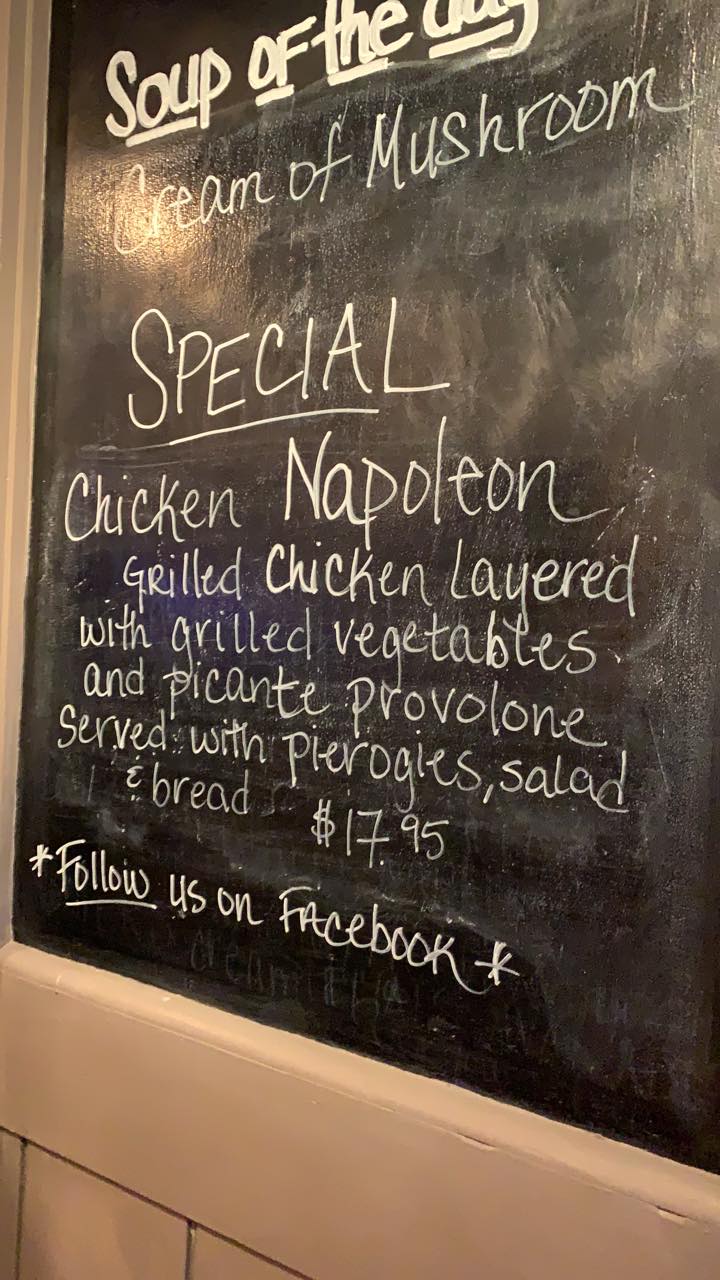 Soup of the day
Cream of Mushroom
SPECIAL
Chicken Napoleon
Grilled Chicken Layered
with grilled vegetables
and picante provolone
Served with pierogies, salad
& bread $17.95
*Follow us on Facebook*